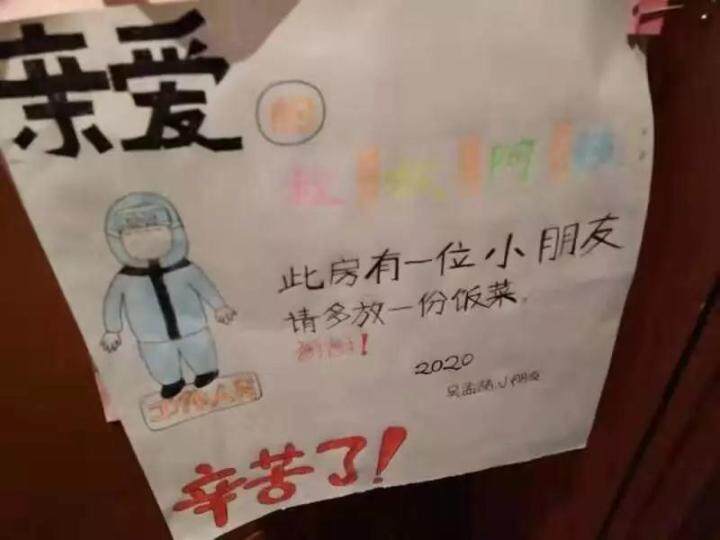 亲爱的
叔叔阿姨
此房有一位小朋友
请多放一份饭菜.
谢谢!
2020
小朋友
辛苦了!